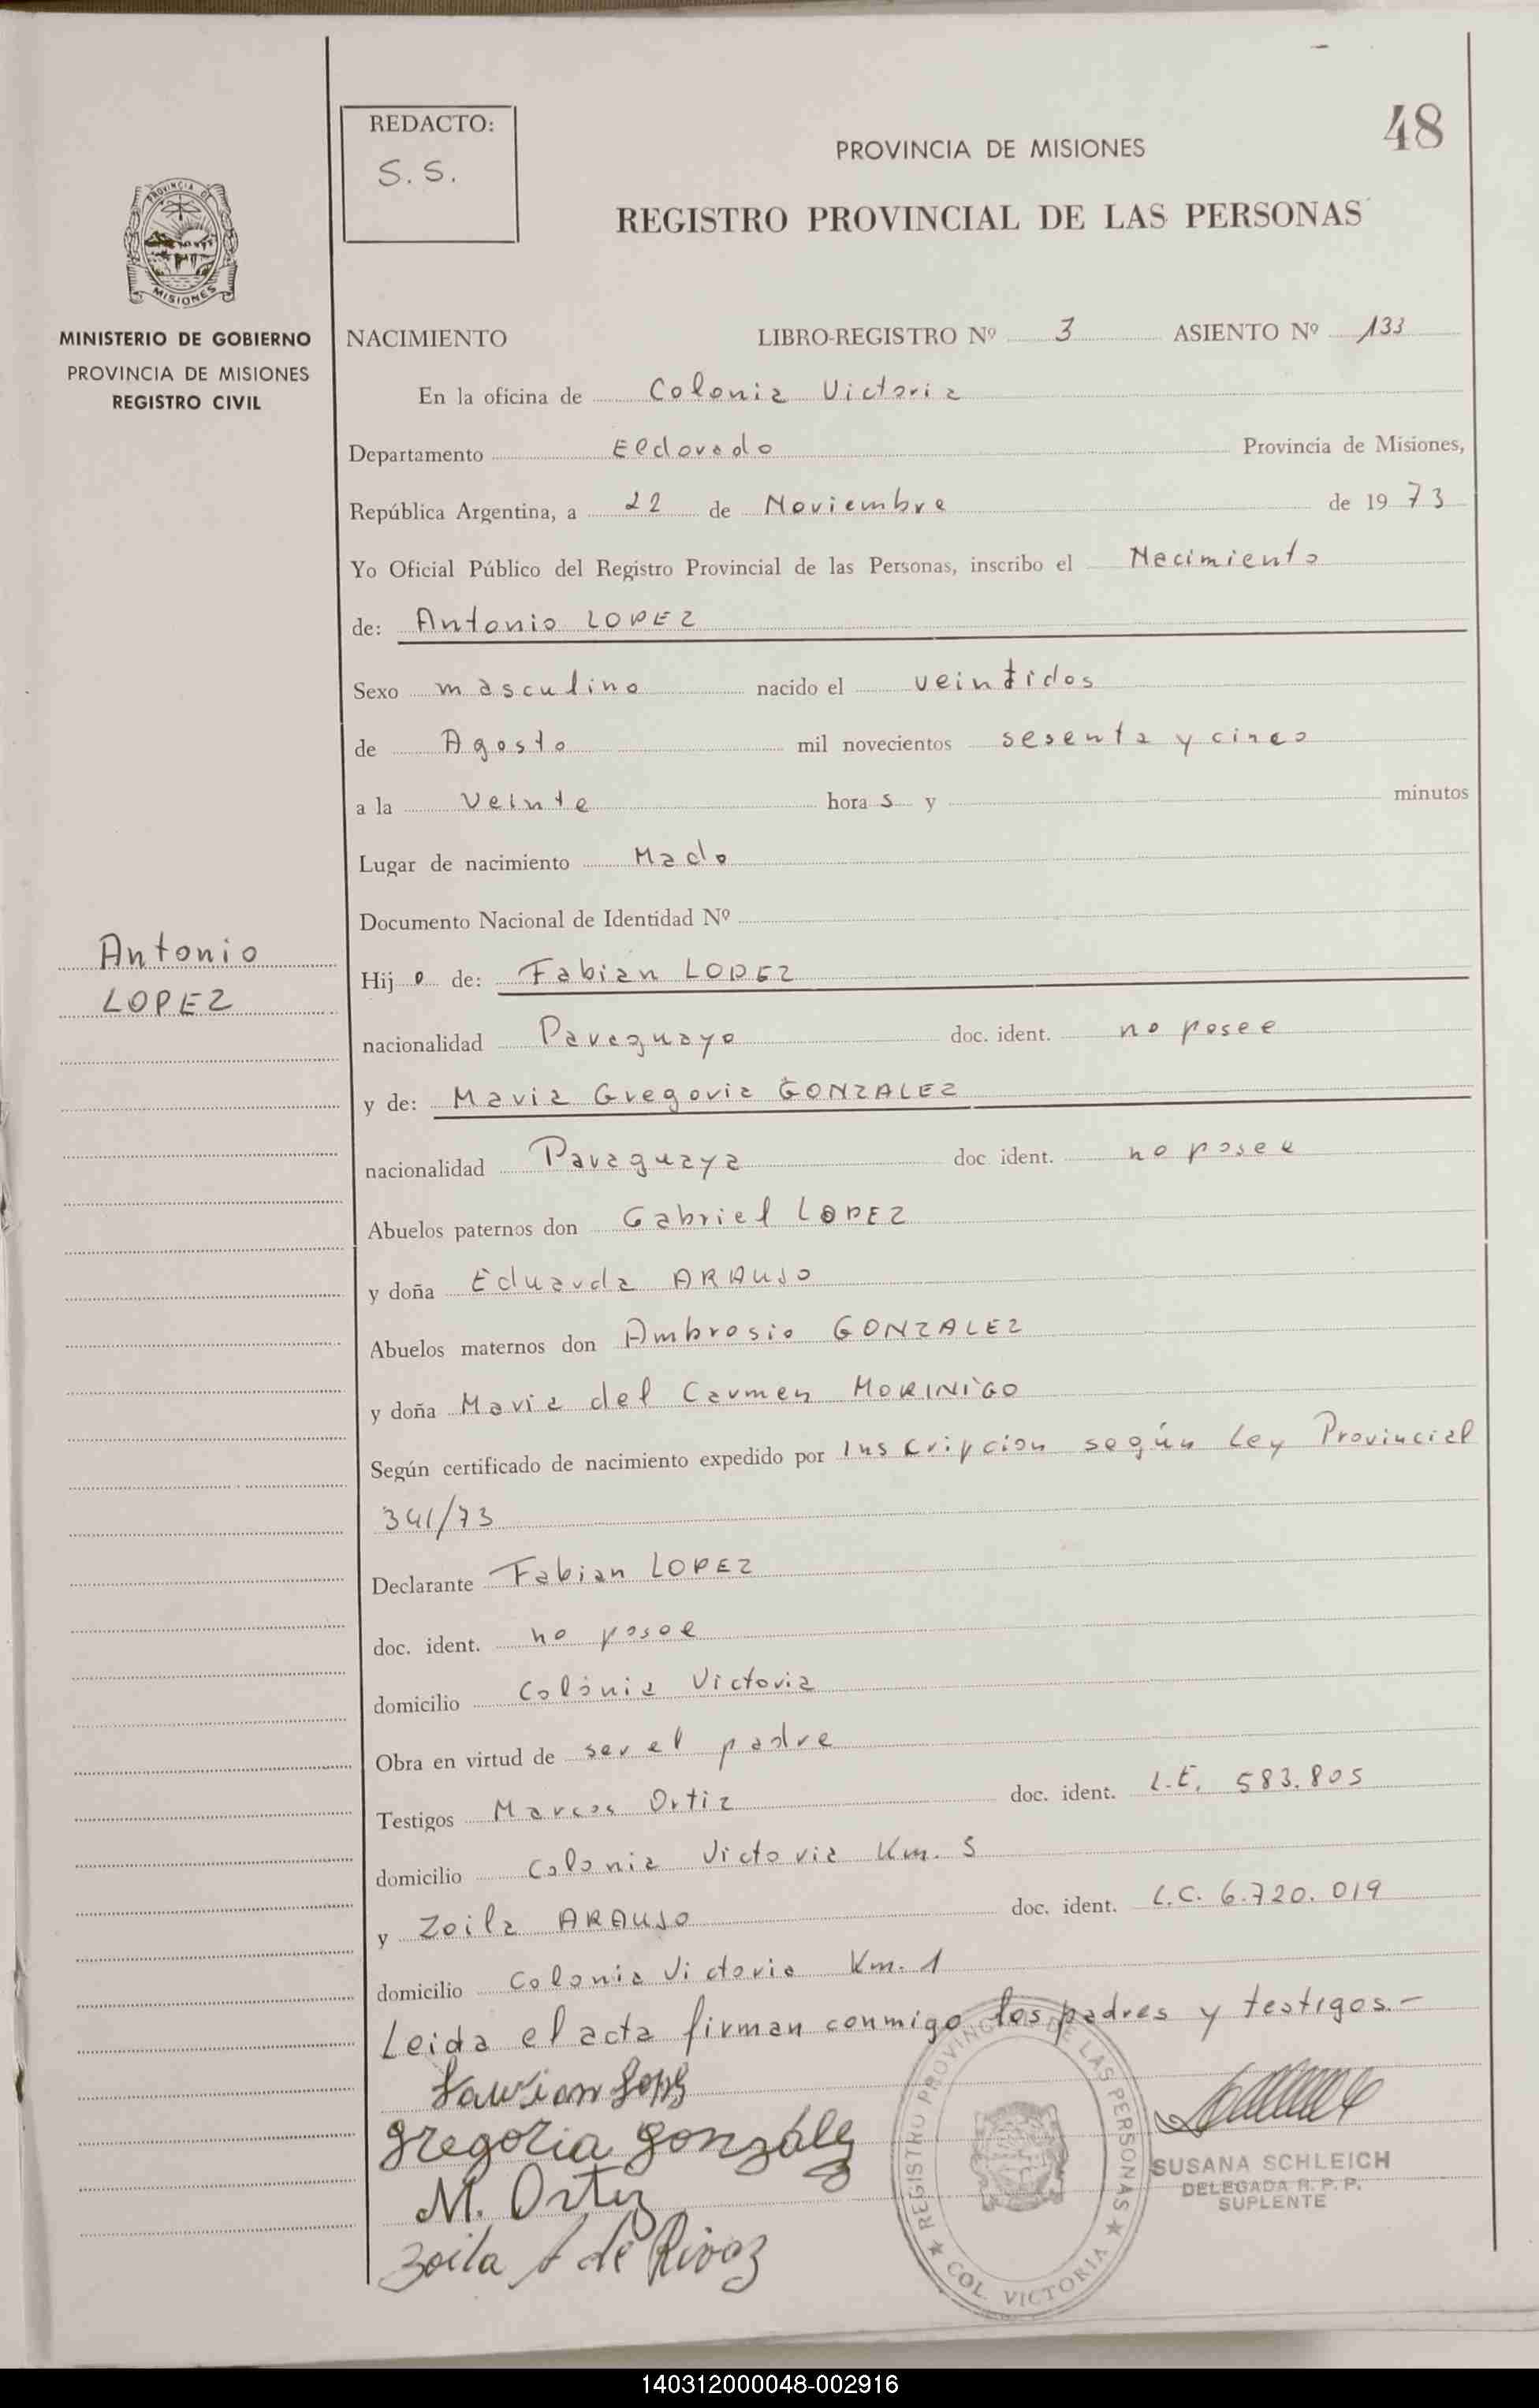 48
REDACTO:
S. S.
PROVINCIA DE MISIONES
REGISTRO PROVINCIAL DE LAS PERSONAS
PROVINCIA DE
MISIONES
MINISTERIO DE GOBIERNO
PROVINCIA DE MISIONES
REGISTRO CIVIL
NACIMIENTO LIBRO-REGISTRO Nº 3 ASIENTO Nº 133
En la oficina de Colonia Victoria
Departamento Eldorado Provincia de Misiones,
República Argentina, a 22 de Noviembre de 19 73
Yo Oficial Público del Registro Provincial de las Personas, inscribo el Nacimiento
de: Antonio LOPEZ
Sexo masculino nacido el veintidos
de Agosto mil novecientos sesenta y cinco
a la veinte hora s y minutos
Lugar de nacimiento Mado
Documento Nacional de Identidad Nº
Antonio
LOPEZ
Hij o de: Fabian LOPEZ
nacionalidad Paraguayo doc. ident. no posee
y de: Maria Gregoria GONZALEZ
nacionalidad Paraguaya doc ident. no posee
Abuelos paternos don Gabriel LOPEZ
y doña Eduarda ARAUJO
Abuelos maternos don Ambrosio GONZALEZ
y doña Maria del Carmen MORINIGO
Según certificado de nacimiento expedido por Inscripcion según Ley Provincial
341/73
Declarante Fabian LOPEZ
doc. ident. no posee
domicilio Colonia Victoria
Obra en virtud de ser el padre
Testigos Marcos Ortiz doc. ident. L.E. 583.805
domicilio Colonia Victoria Km. 5
y Zoila ARAUJO doc. ident. L.C. 6.720.019
domicilio Colonia Victoria Km. 1
Leida el acta firman conmigo los padres y testigos.-
Gregoria González
M. Ortiz
Zoila A de Rivaz
REGISTRO PROVINCIAL DE LAS PERSONAS
COL. VICTORIA
SUSANA SCHLEICH
DELEGADA R. P. P.
SUPLENTE
140312000048-002916